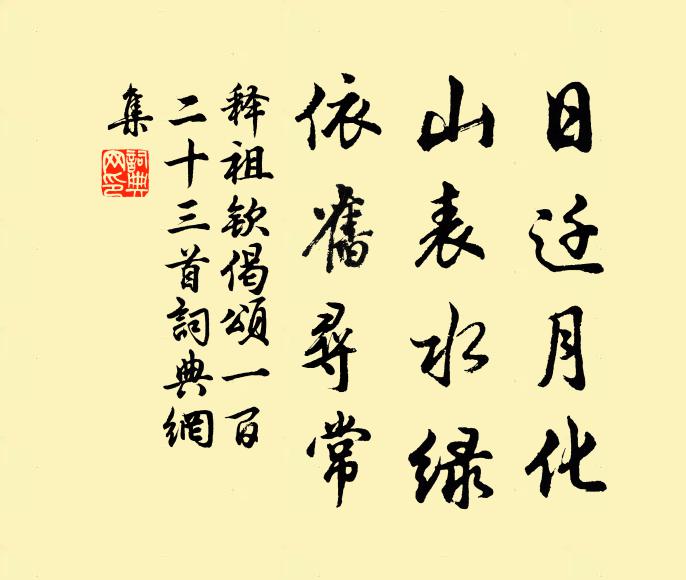 日迁月化
山表水绿
依舊尋常
释祖钦偈颂一百
二十三首詞典網
集
詞典网印